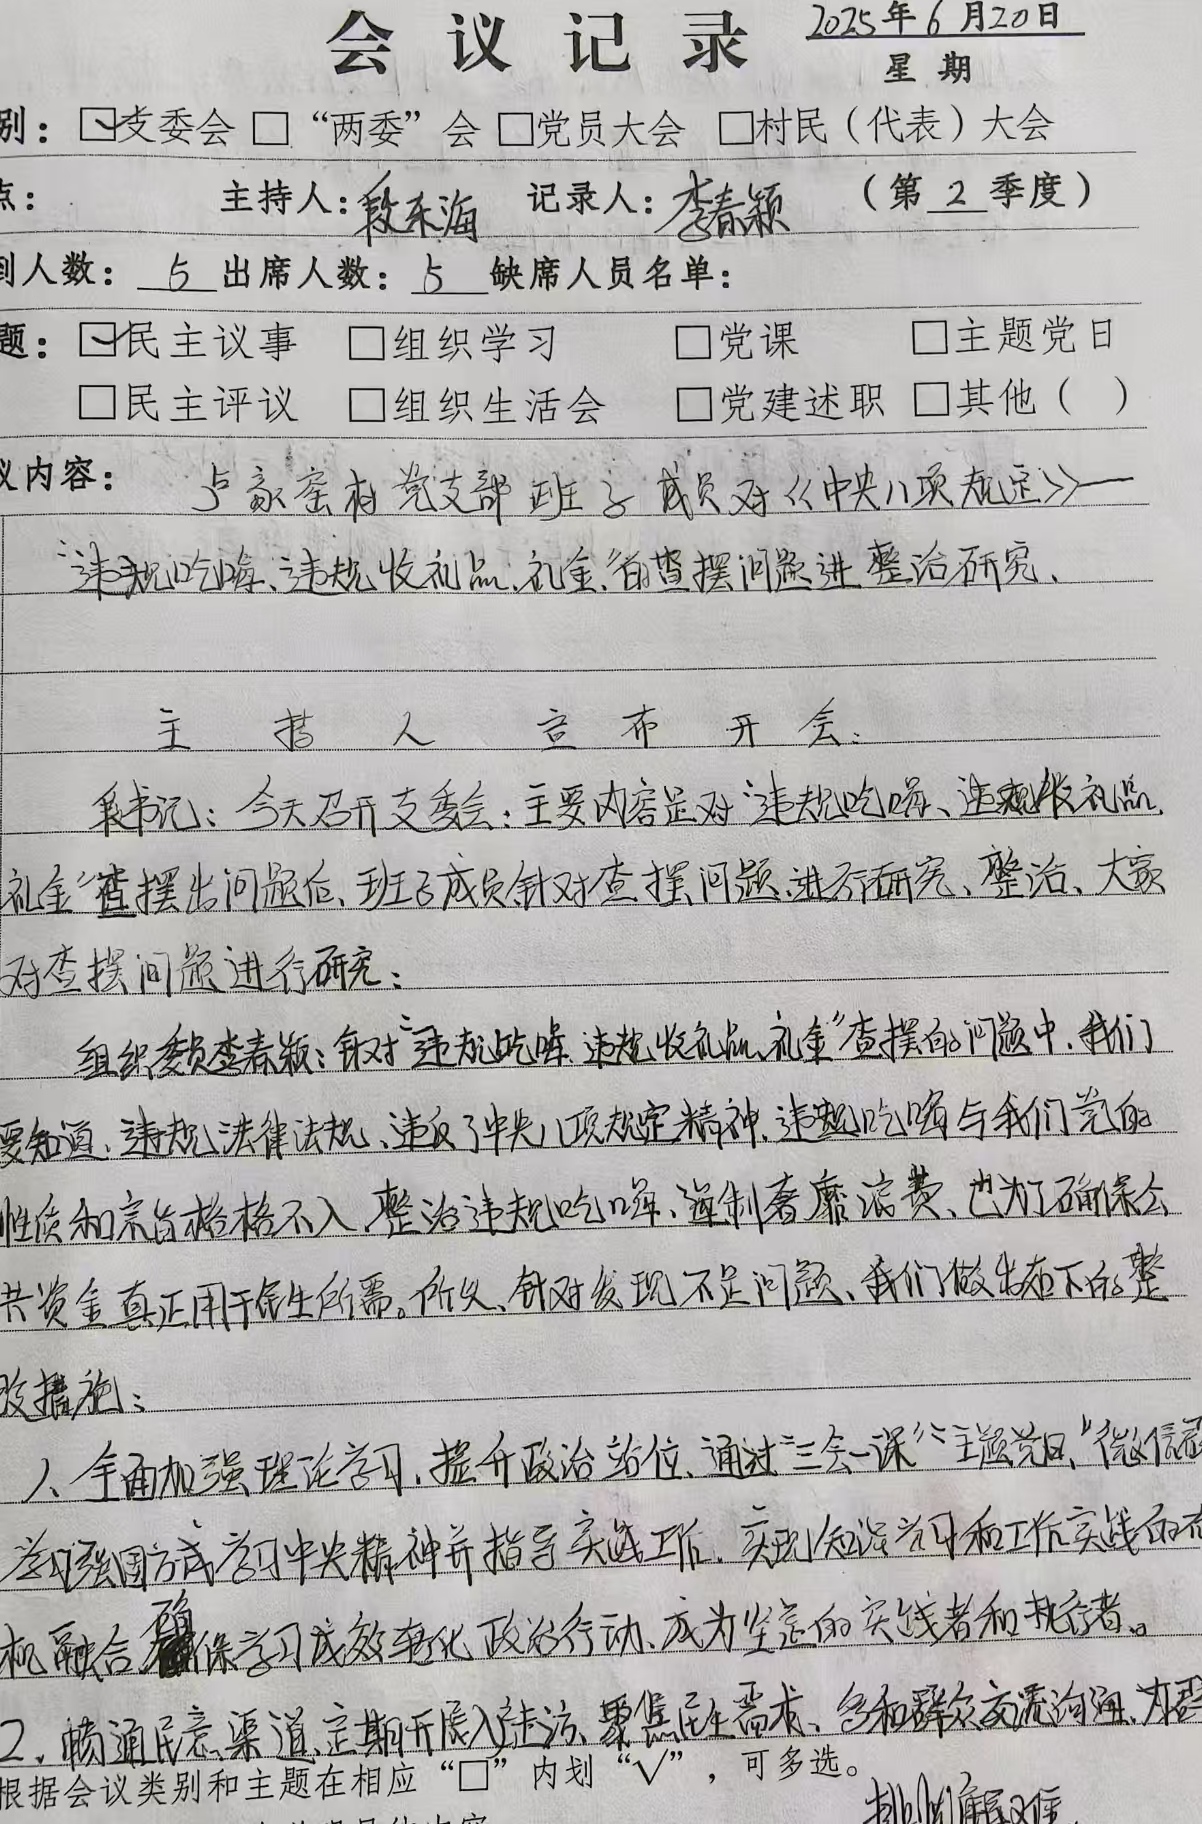 会议记录 2025年6月20日
星期
别：☑支委会 □“两委”会 □党员大会 □村民（代表）大会
点： 主持人：段东海 记录人：李春颖 （第2季度）
到人数：5 出席人数：5 缺席人员名单：
题：☑民主议事 □组织学习 □党课 □主题党日
□民主评议 □组织生活会 □党建述职 □其他（ ）
议内容： 占家窑村党支部班子成员对《中央八项规定》一
“违规吃喝、违规收礼品、礼金”自查摆问题进整治研究、
主持人宣布开会：
段书记：今天召开支委会：主要内容是对“违规吃喝、违规收礼品、
礼金”查摆出问题后、班子成员针对查摆问题、进行研究、整治、大家
对查摆问题进行研究：
组织委员李春颖：针对“违规吃喝、违规收礼品、礼金”查摆的问题中、我们
要知道、违规法律法规、违反了中央八项规定精神、违规吃喝与我们党的
性质和宗旨格格不入、整治违规吃喝、遏制奢靡浪费、也为了确保公
共资金真正用于民生所需。所以、针对发现不足问题、我们做出在下的整
改措施：
1、全面加强理论学习、提升政治站位、通过“三会一课”“主题党日、”微信
学习强国方式学习中央精神并指导实践工作、实现知识学习和工作实践的有
机融合确保学习成效转化政治行动、成为坚定的实践者和执行者。
2、畅通民意渠道、定期开展入户走访、聚焦民生需求、多和群众交流沟通、为群
根据会议类别和主题在相应“□”内划“√”，可多选。
排忧解难